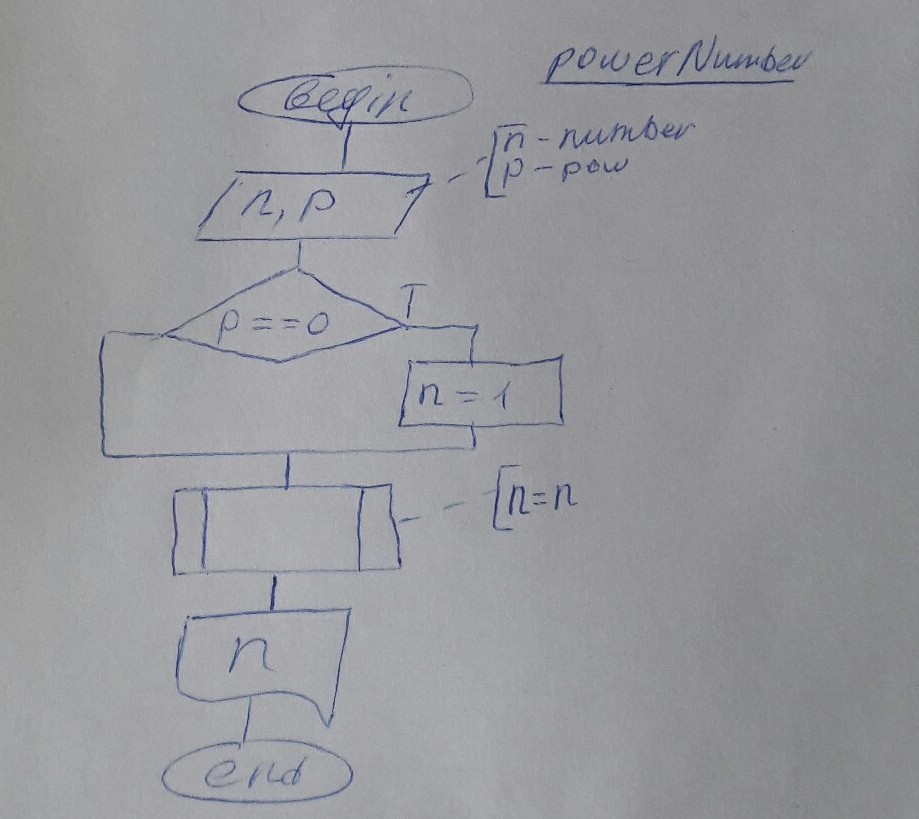 powerNumber
begin
n - number
p - pow
n, p
T
p == 0
n = 1
n = n
n
end